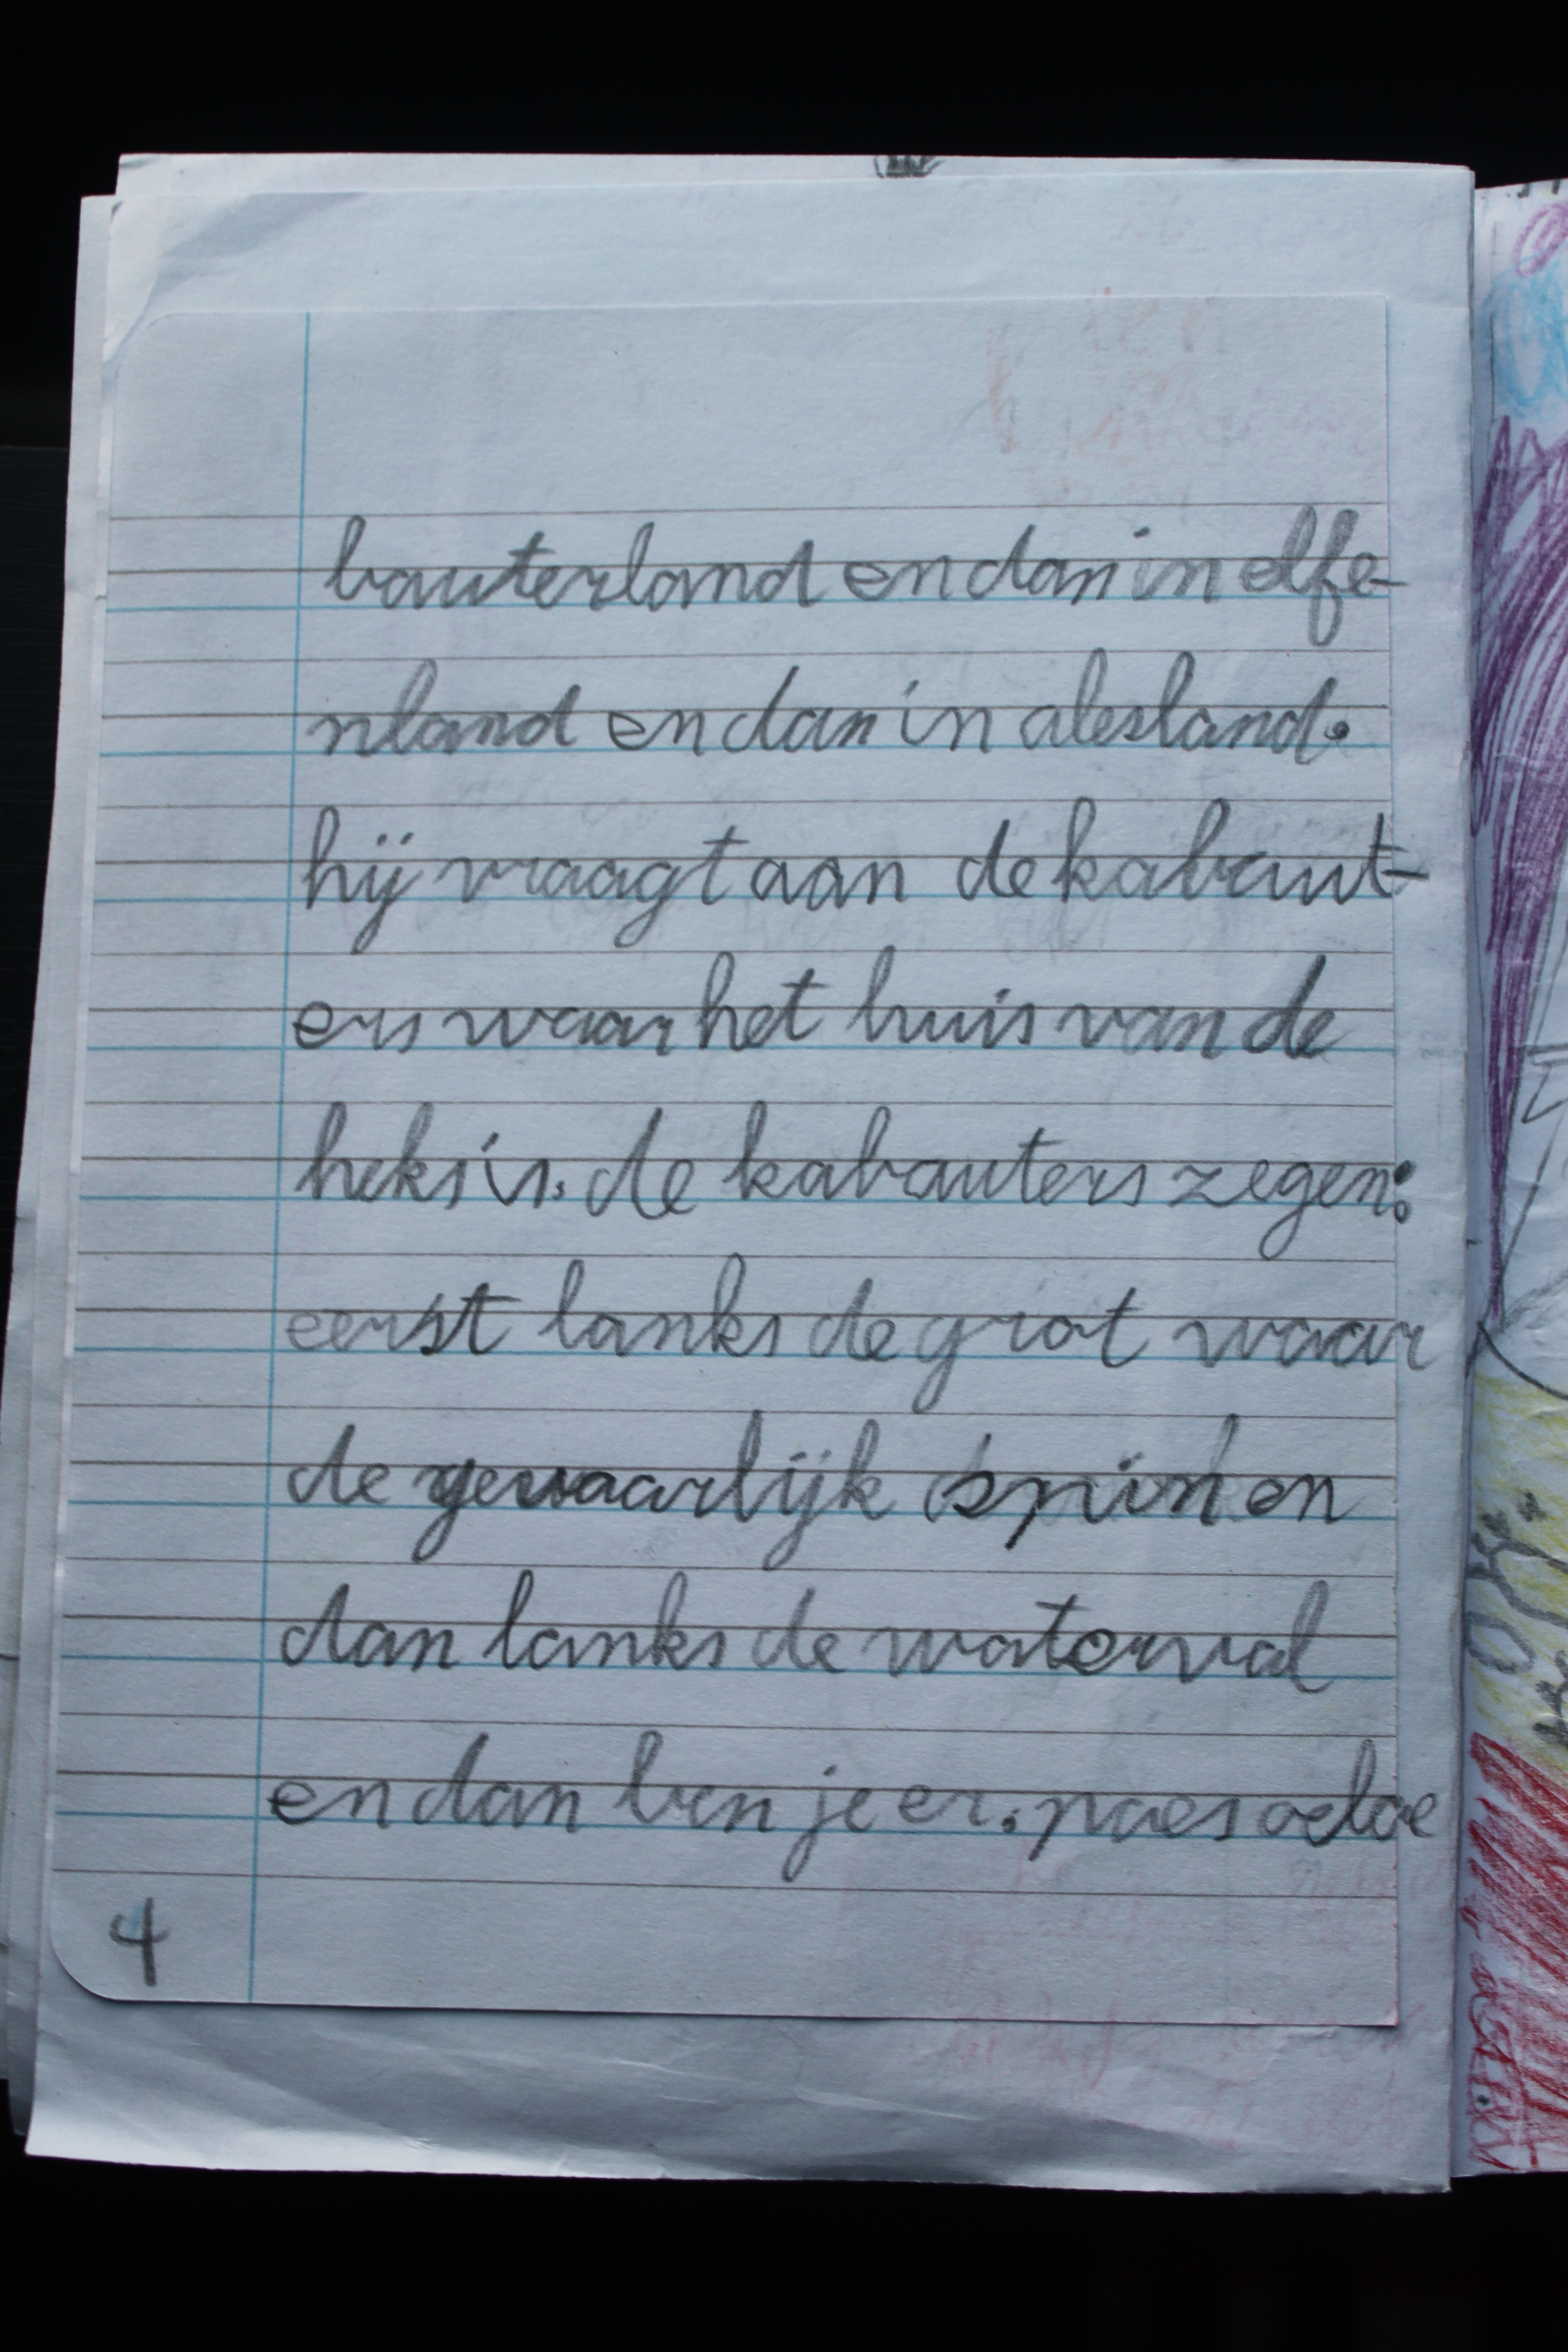 bauterland en dan in elfe-
nland en dan in alesland.
hij vraagt aan de kabaut-
ers waar het huis van de
heks is. de kabauters zegen:
eerst lanks de grot waar
de gevaarlijk spin en
dan lanks de waterval
en dan ben je er. paes
4